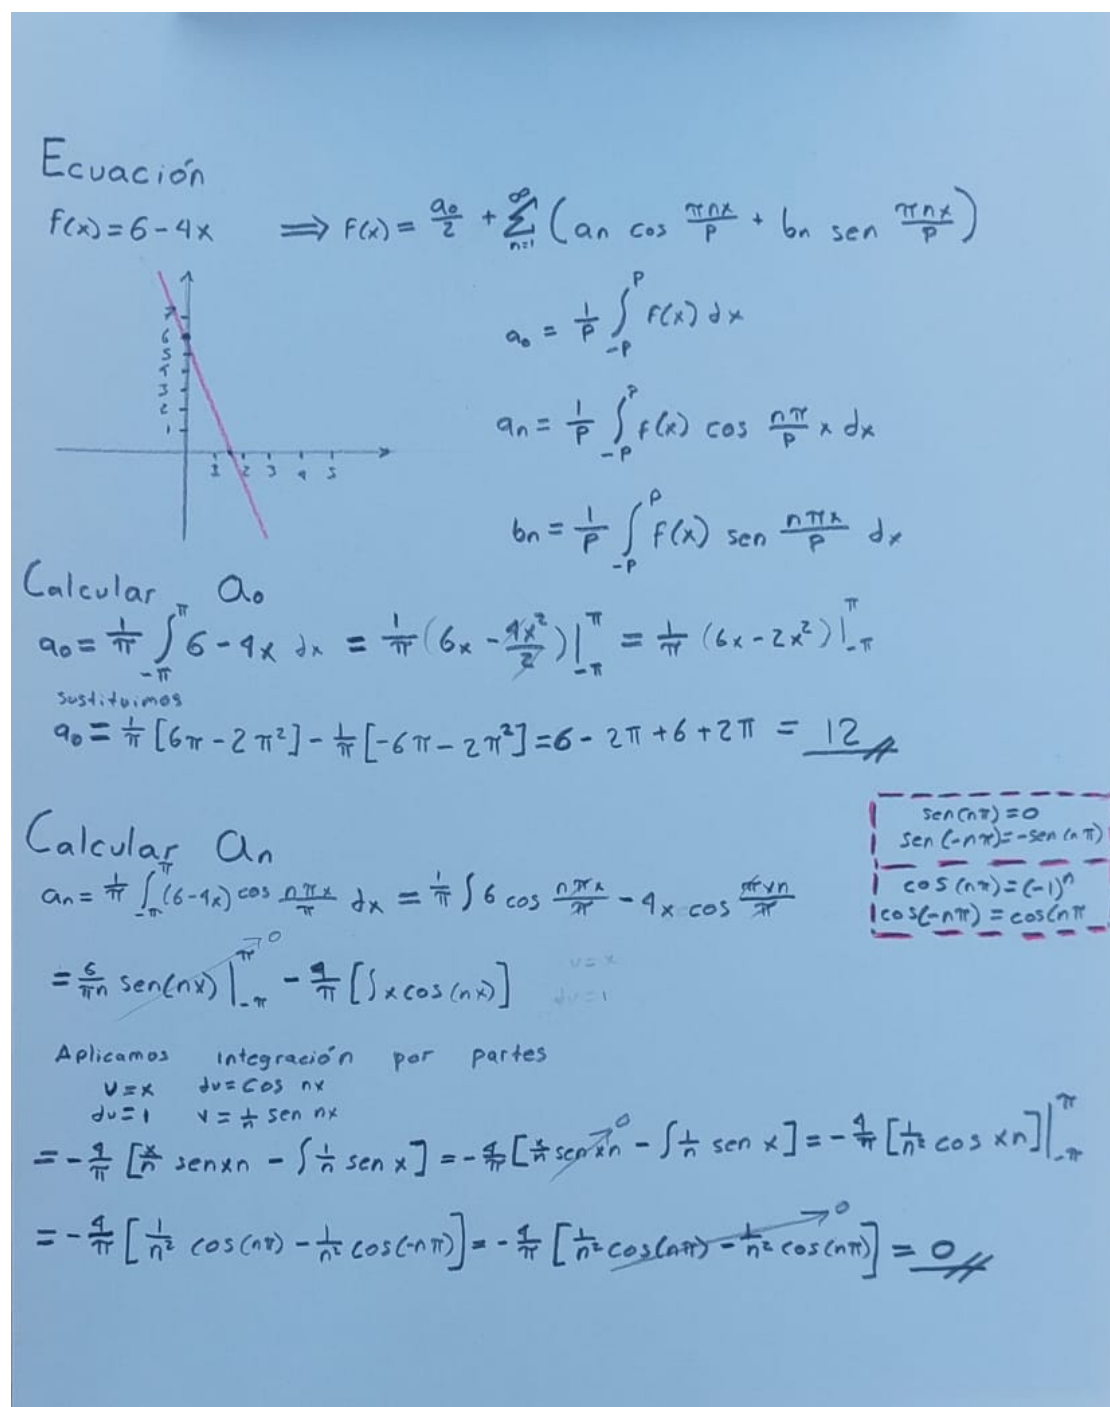 Ecuación
f(x) = 6 - 4x ⟹ f(x) = a₀/2 + ∑ₙ₌₁^∞ (an cos πnx/P + bn sen πnx/P)
7
6
5
4
3
2
1
1 2 3 4 5
a₀ = 1/P ∫₋ₚ^P f(x) dx
an = 1/P ∫₋ₚ^P f(x) cos nπ/P x dx
bn = 1/P ∫₋ₚ^P f(x) sen nπx/P dx
Calcular a₀
a₀ = 1/π ∫_-π^π 6 - 4x dx = 1/π (6x - 4x²/2)|_-π^π = 1/π (6x - 2x²)|_-π^π
sustituimos
a₀ = 1/π [6π - 2π²] - 1/π [-6π - 2π²] = 6 - 2π + 6 + 2π = 12
sen(nπ) = 0
sen(-nπ) = -sen(nπ)
cos(nπ) = (-1)ⁿ
cos(-nπ) = cos(nπ
Calcular an
an = 1/π ∫_-π^π (6-4x) cos nπx/π dx = 1/π ∫ 6 cos nπx/π - 4x cos πxn/π
= 6/πn sen(nx)|_-π^π → 0 - 4/π [∫x cos(nx)]
v = x
dv = 1
Aplicamos integración por partes
u = x dv = cos nx
du = 1 v = 1/n sen nx
= -4/π [x/n sen xn - ∫ 1/n sen x] = -4/π [x/n sen xn → 0 - ∫ 1/n sen x] = -4/π [1/n² cos xn]|_-π^π
= -4/π [1/n² cos(nπ) - 1/n² cos(-nπ)] = -4/π [1/n² cos(nπ) - 1/n² cos(nπ)] → 0 = 0